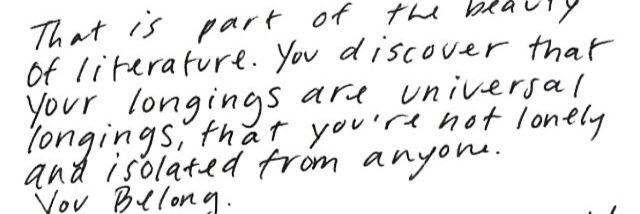 That is part of the beauty
of literature. You discover that
your longings are universal
longings, that you're not lonely
and isolated from anyone.
You Belong.